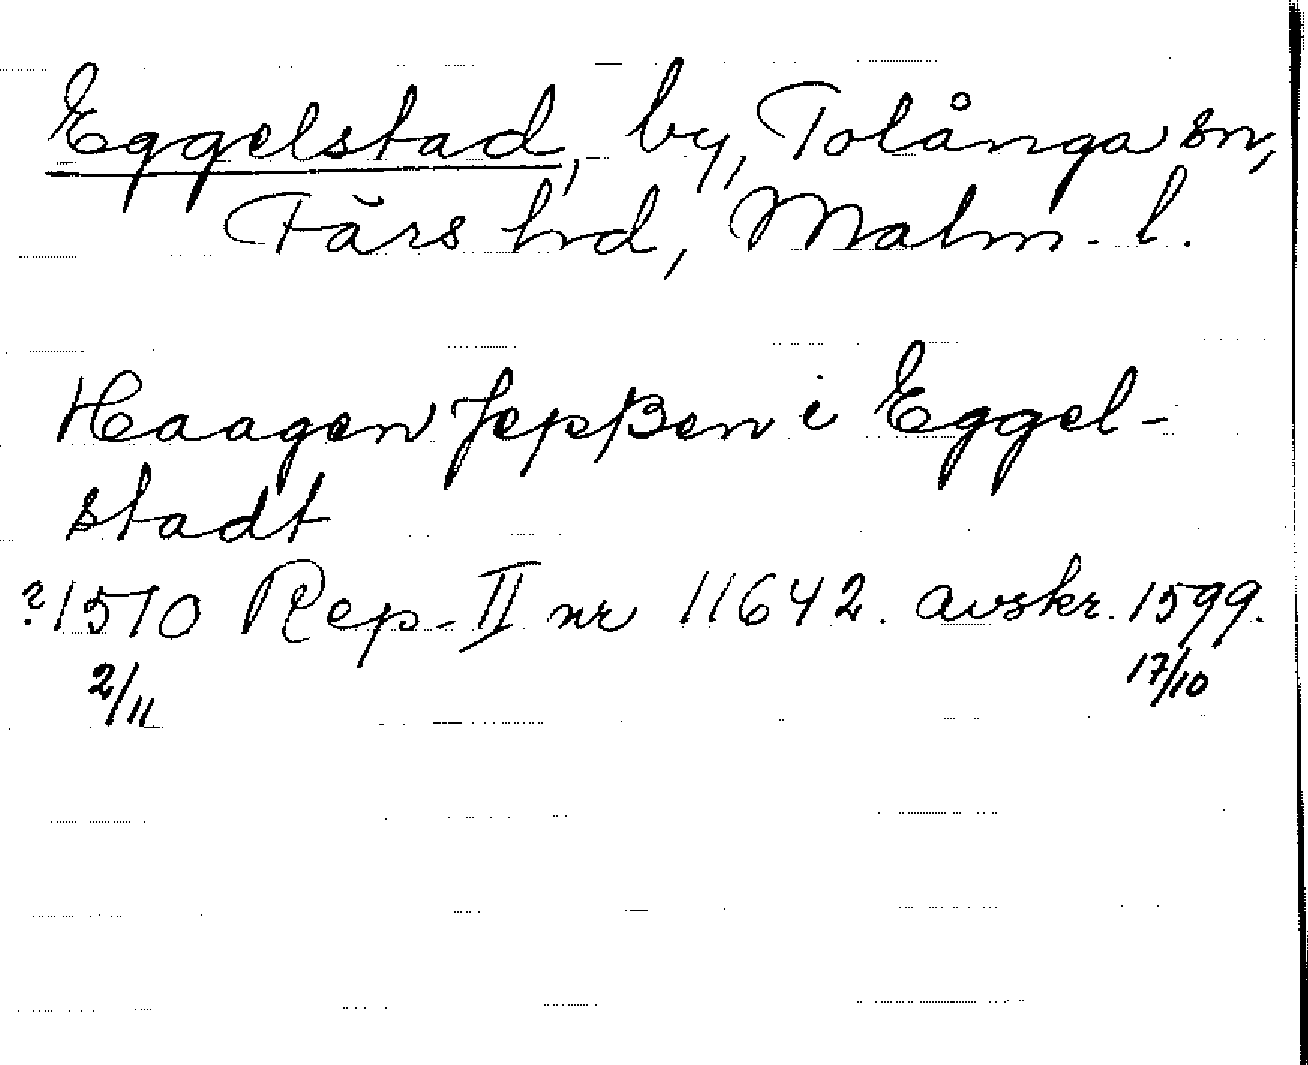 Eggelstad, by, Tolånga sn,
Färs hd, Malm. l.
Haagen Jepßen i Eggel-
stadt
?1510 Rep. II nr 11642. avskr. 1599.
2/11 17/10